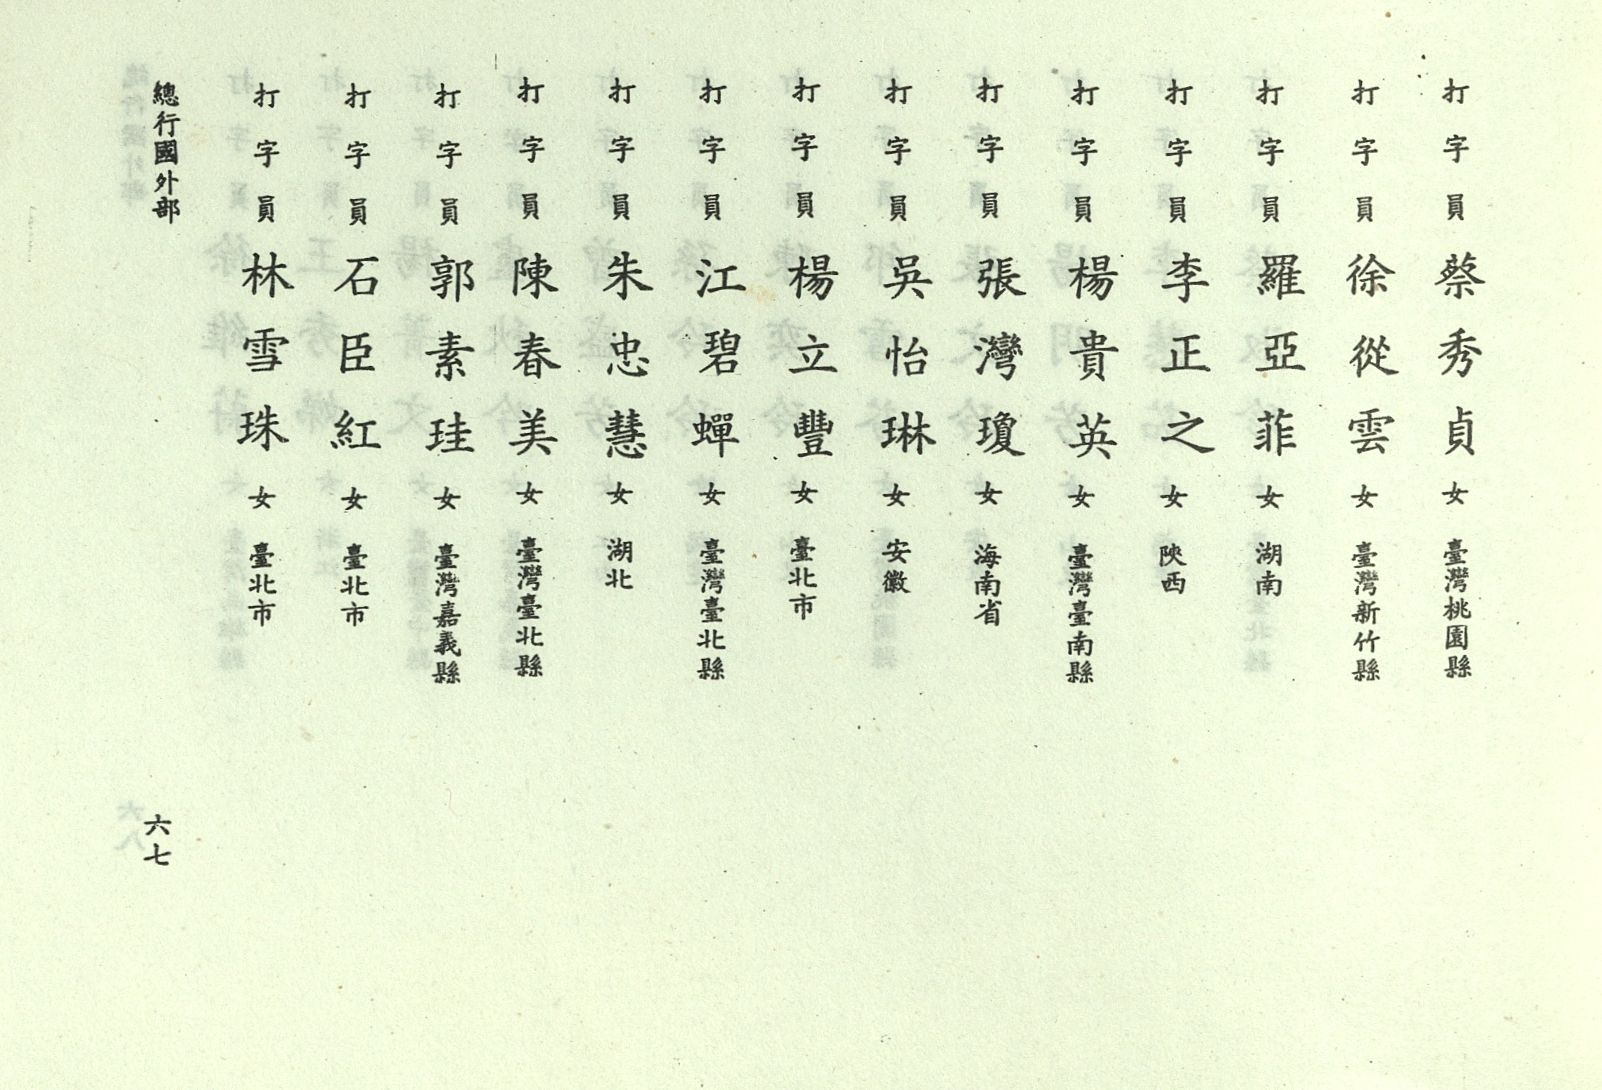 打字員 蔡秀貞 女 臺灣桃園縣
打字員 徐從雲 女 臺灣新竹縣
打字員 羅亞菲 女 湖南
打字員 李正之 女 陝西
打字員 楊貴英 女 臺灣臺南縣
打字員 張灣瓊 女 海南省
打字員 吳怡琳 女 安徽
打字員 楊立豐 女 臺北市
打字員 江碧蟬 女 臺灣臺北縣
打字員 朱忠慧 女 湖北
打字員 陳春美 女 臺灣臺北縣
打字員 郭素珪 女 臺灣嘉義縣
打字員 石臣紅 女 臺北市
打字員 林雪珠 女 臺北市
總行國外部
六七